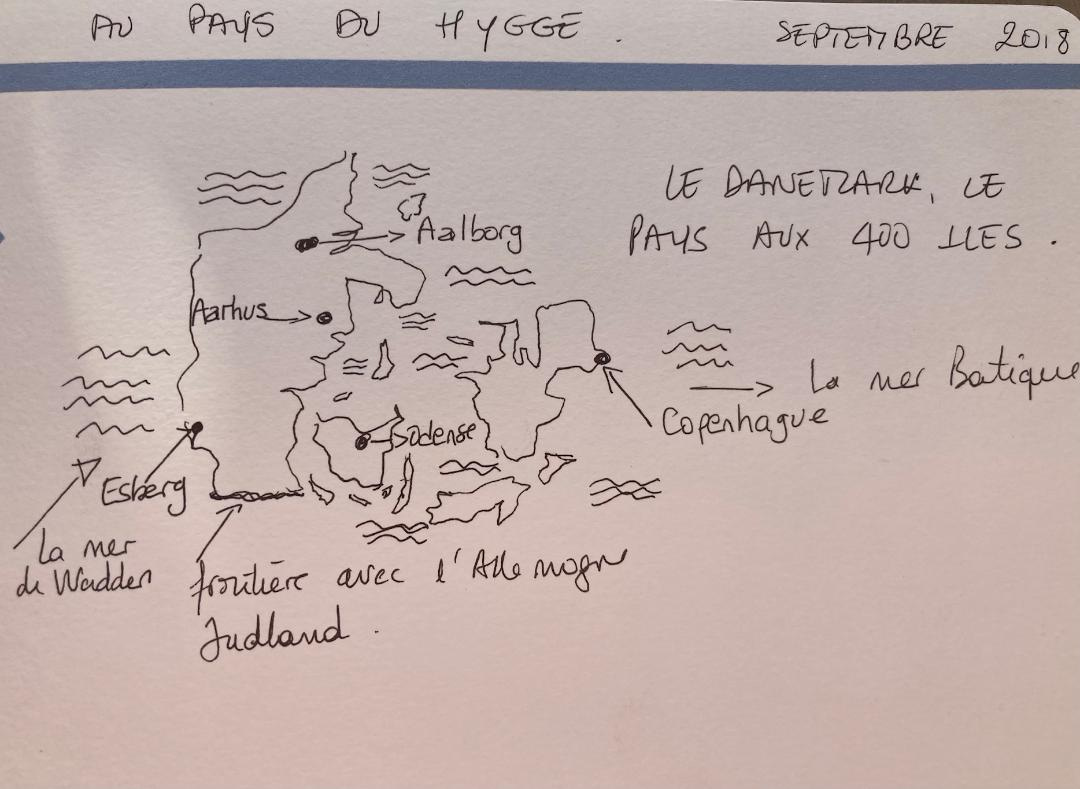 AU PAYS DU HYGGE.
SEPTEMBRE 2018
LE DANEMARK, LE
PAYS AUX 400 ILES.
Aalborg
Aarhus
La mer Batique
Copenhague
Odense
Esberg
La mer
de Wadden
frontière avec l'Allemagne
Judland.